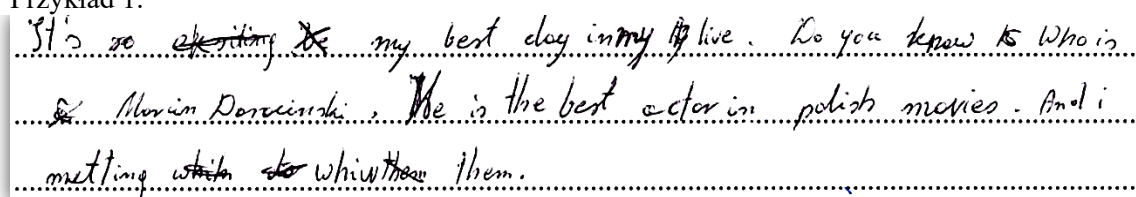 Przykład 1.
It's so my best day in my live. Do you know Who is
Marcin Dorociński, He is the best actor in polish movies. And i
metting whiw them.